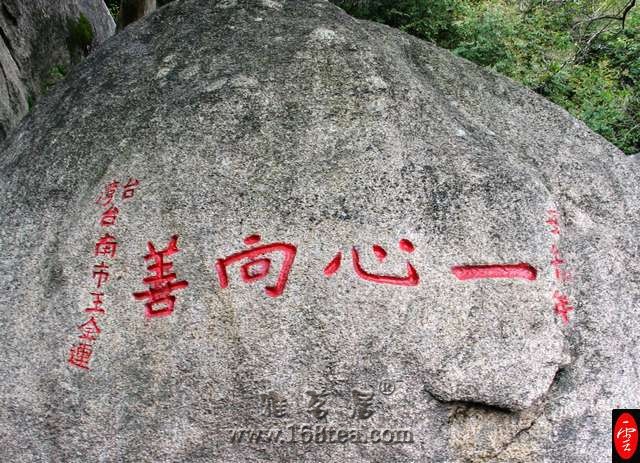 一心向善
台湾台南市王金連
雅茗居®
www.168tea.com
雲